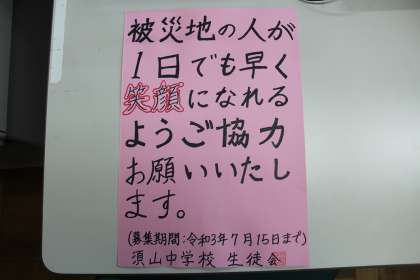 被災地の人が
1日でも早く
笑顔になれる
ようご協力
お願いいたし
ます。
(募集期間:令和3年7月15日まで)
須山中学校 生徒会